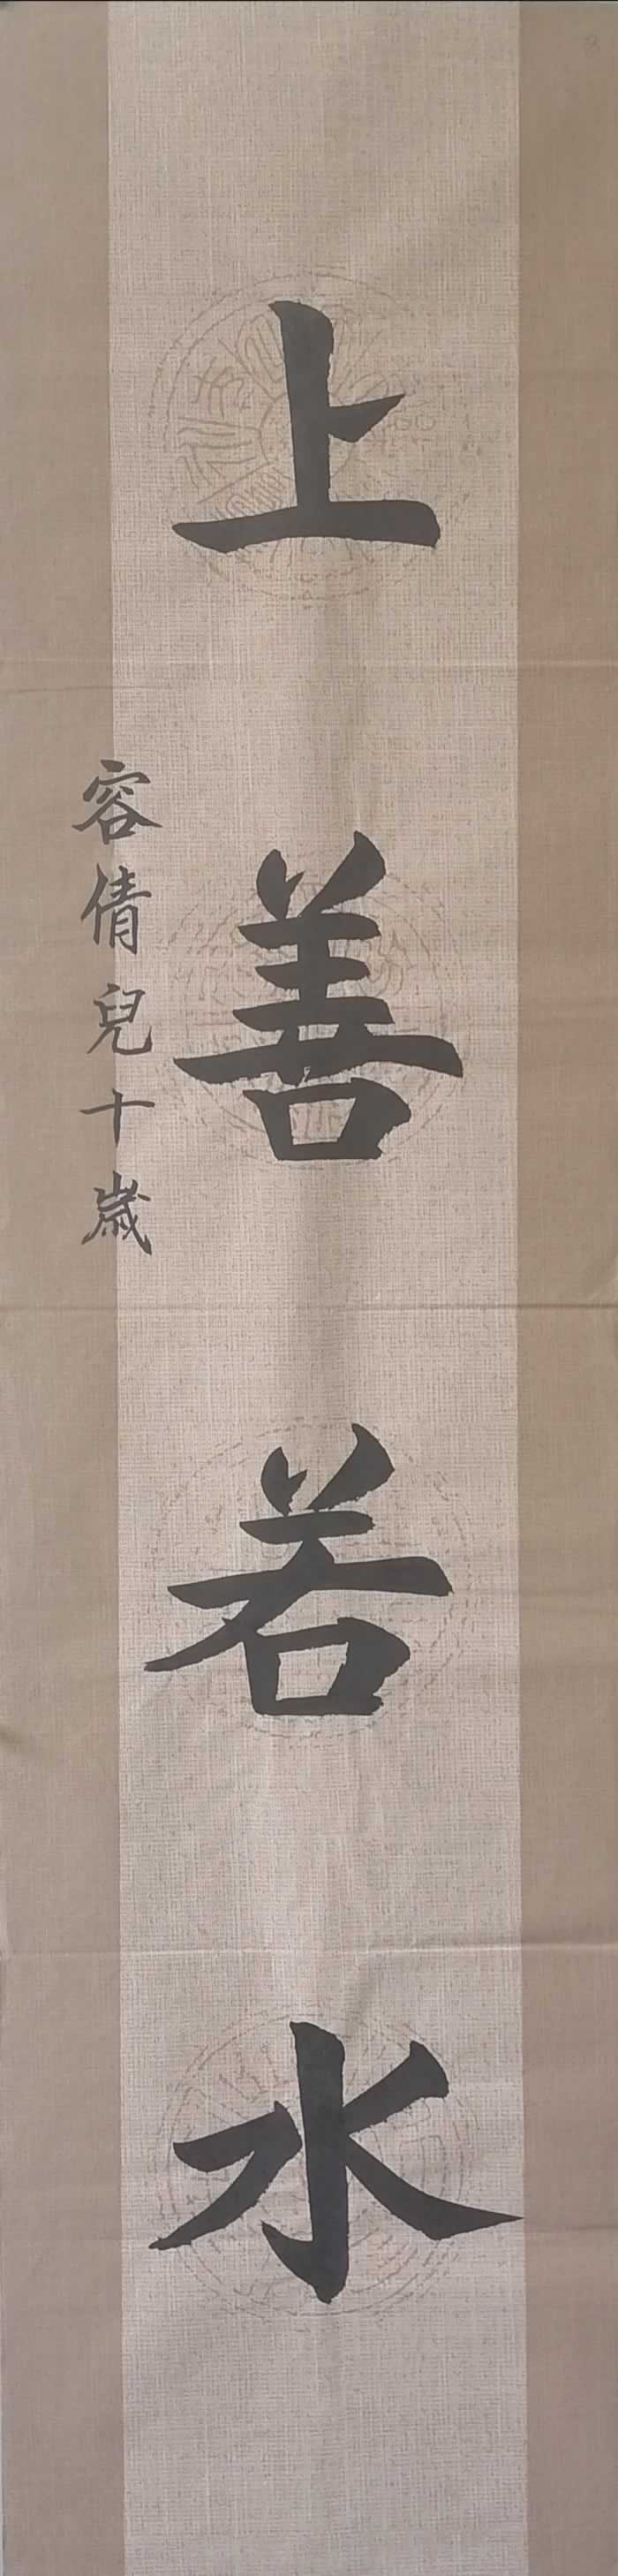 上善若水
容倩兒十歲